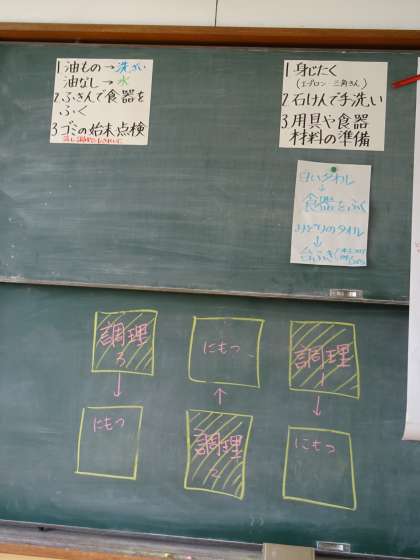 1 油もの→洗ざい
油なし→水
2.ふきんで食器を
ふく
3 ゴミの始末点検
1 身じたく
(エプロン・三角きん)
2 石けんで手洗い
3 用具や食器
材料の準備
白いタオル
↓
食器をふく
みどりのタオル
↓
台ふき
調理
3
↓
にもつ
にもつ
↑
調理
2
調理
1
↓
にもつ